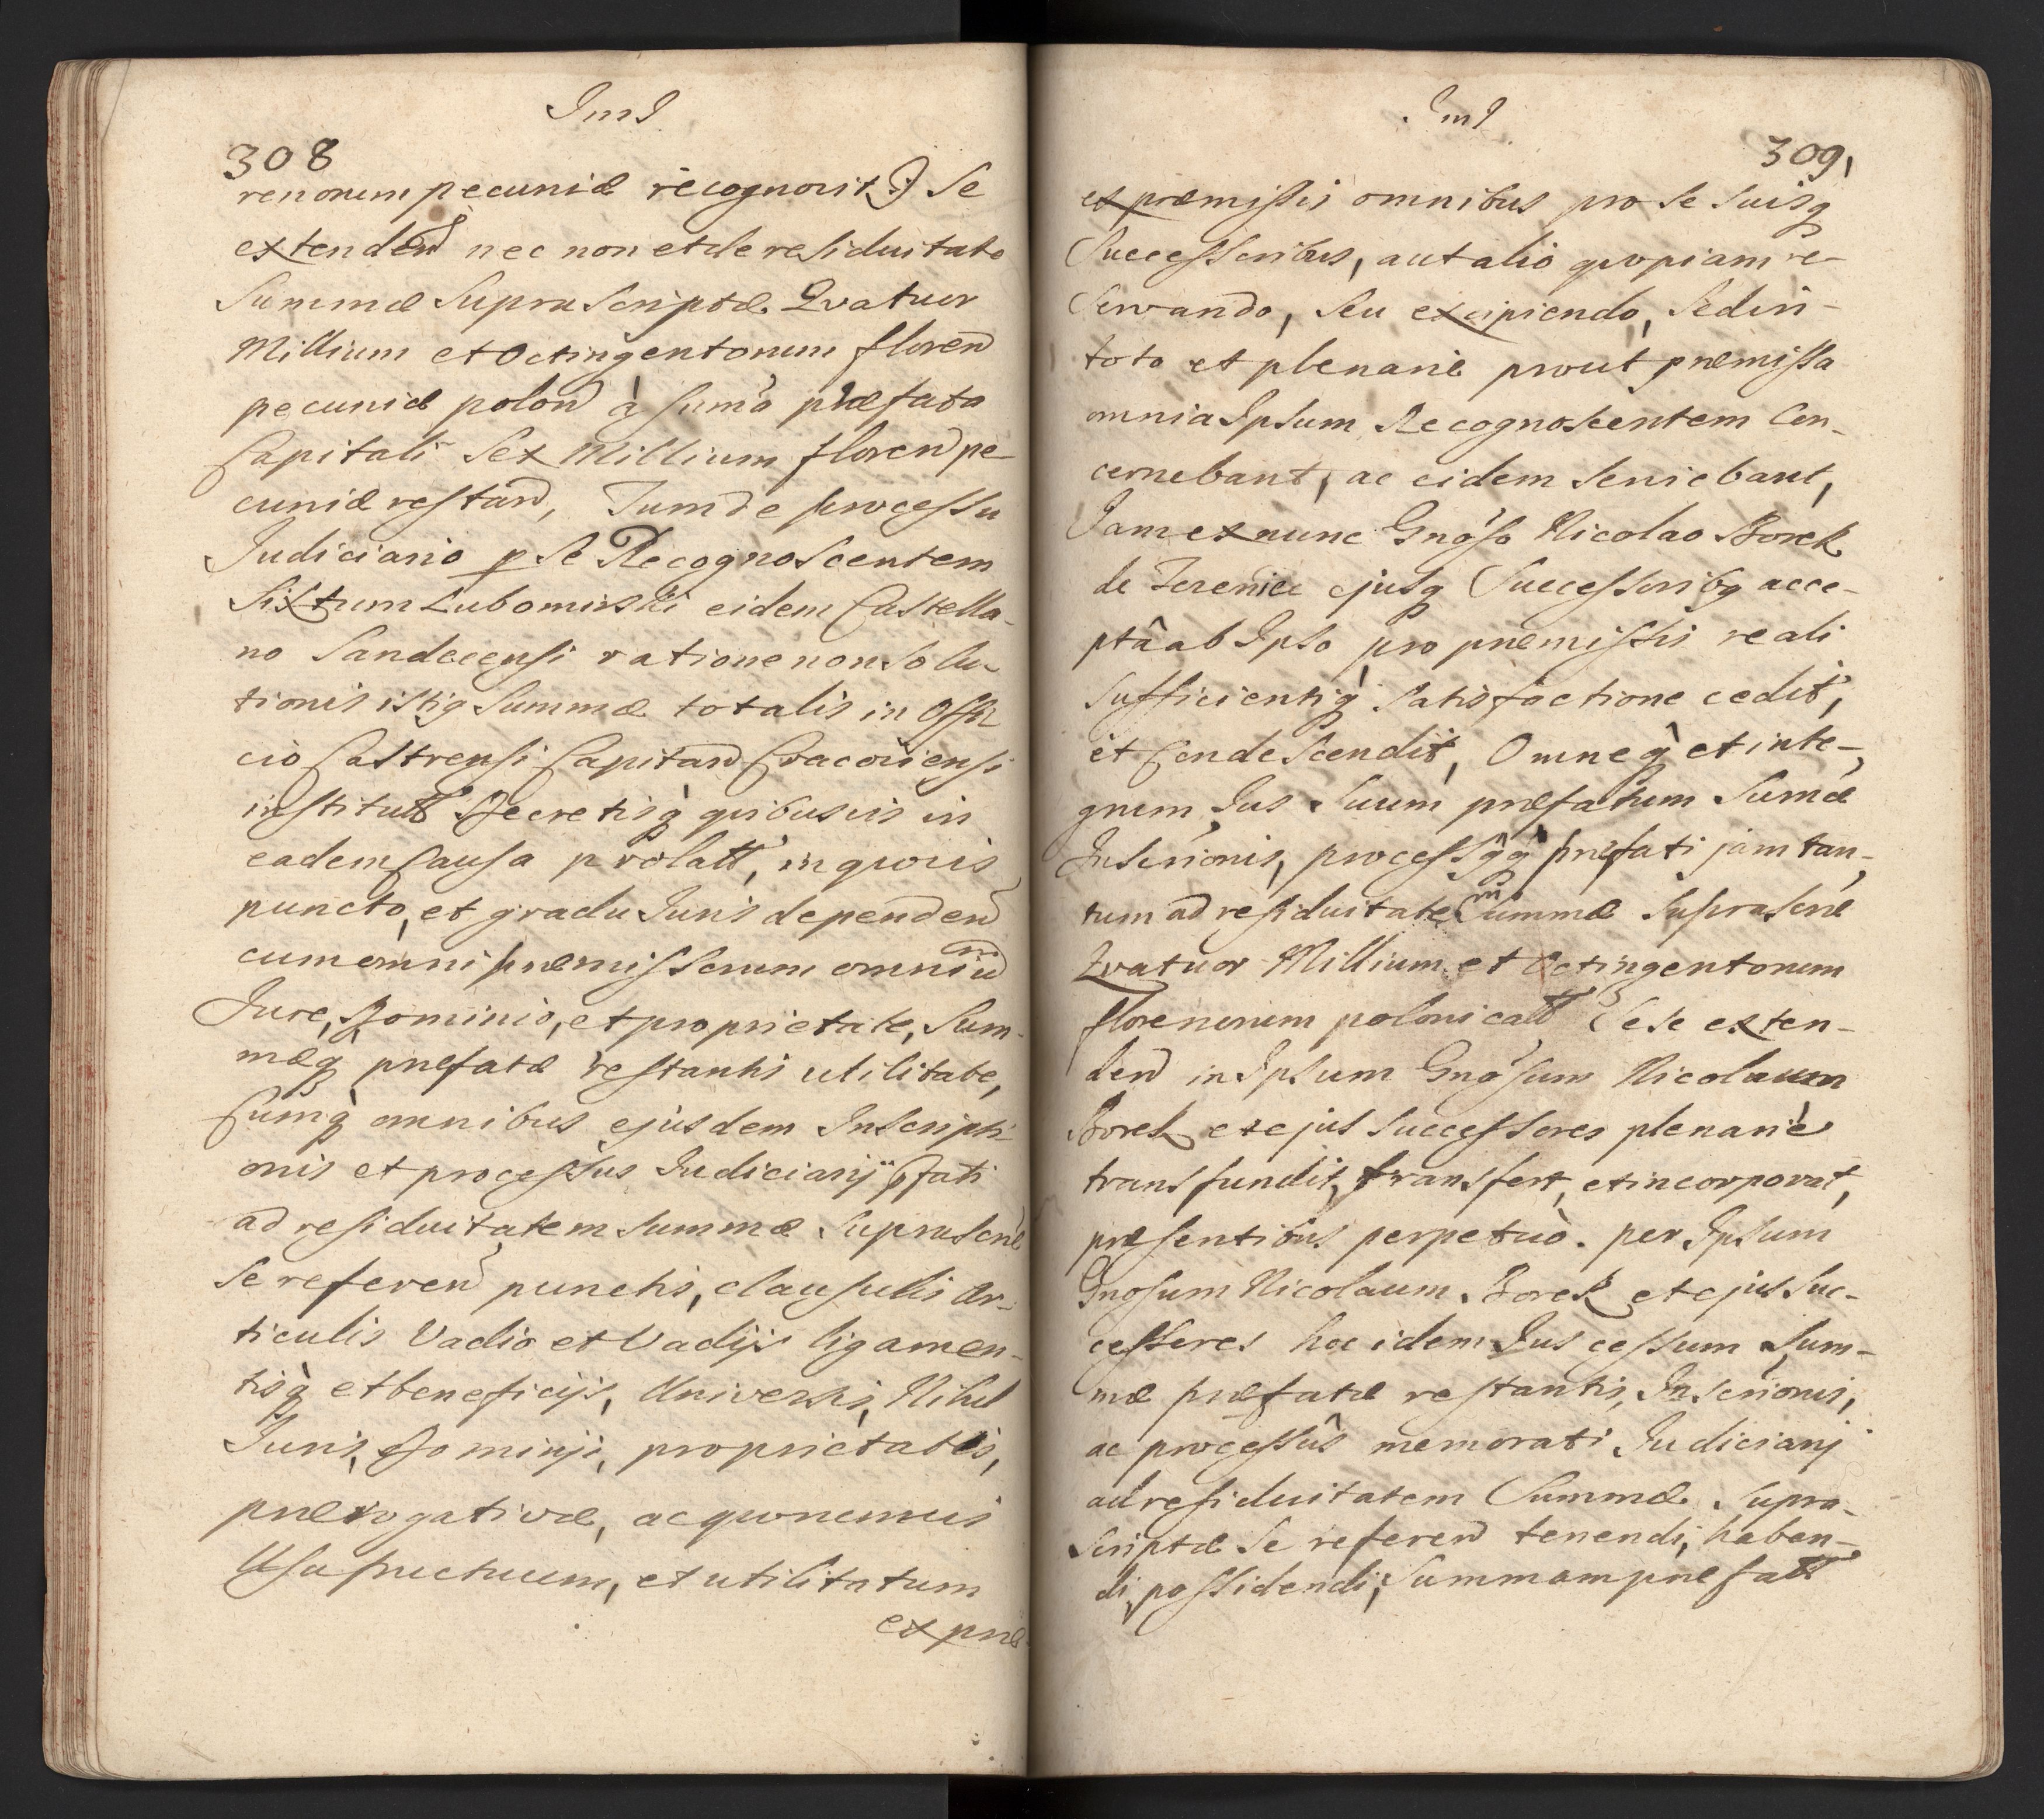 308
renorum pecuniæ recognovit se
extenden nec non et de residuitate
Summæ Supra Scriptæ Qvatuor
Millium et Octingentorum floren
pecuniæ polon à suma præfata
Capitali Sex Millium floren pe-
cuniæ restan, Tum de processu
Judiciario p se Recognoscentem
Sixtum Lubomirski eidem Castella-
no Sandecensi ratione non solu-
tionis istiq Summæ totalis in Offi
cio Castrensi Capitan Cracoviensi
institutt Decretisq quibusvis in
eadem Causa prolatt, in quovis
puncto, et gradu Juris dependen
cum omni præmissorum omniu
Jure, Dominio, et proprietate, Sum-
mæq præfatæ restantis utilitate,
Cumq omnibus ejusdem Inscripti-
onis et processus Judiciarij pfati
ad residuitatem Summæ Suprascræ
se referen punctis, clausulis Ar-
ticulis Vadio et Vadijs ligamen-
tisq et beneficijs, Universis, Nihil
Juris, Dominji, proprietatis,
prærogativæ, ac quorumvis
Usufructuum, et utilitatum
ex præ
309
ex præmissis omnibus pro se suisq
Successoribus, aut alio qvopiam re-
servando, seu excipiendo, sed in
toto et plenarie prout præmissa
omnia Ipsum Recognoscentem Con-
cernebant, ac eidem serviebant,
Jam ex nunc Gnoso Nicolao Borek
de ejusq Successoribq acce-
ptâ ab Ipso pro præmissis reali
sufficientiq satisfactione cedit,
et Condescendit, Omneq et inte-
grum Jus Suum præfatum Sumæ
Inscrionis, processqq præfati jam tan-
tum ad residuitatem Summæ suprascræ
Qvatuor Millium et Octingentorum
florenorum polonicalt sese exten-
den in Ipsum Gnosum Nicolaum
Borek et ejus Successores plenarie
transfundit, transfert, et incorporat,
præsentibus perpetuò. per Ipsum
Gnosum Nicolaum Borek et ejus Suc-
cessores hoc idem Jus cessum Sum-
mæ præfatæ restantis, Inscrionis,
ac processûs memorati Judiciarij
ad residuitatem Summæ supra-
scriptæ se referen tenendi, haben-
di, possidendi, Summam præfatt